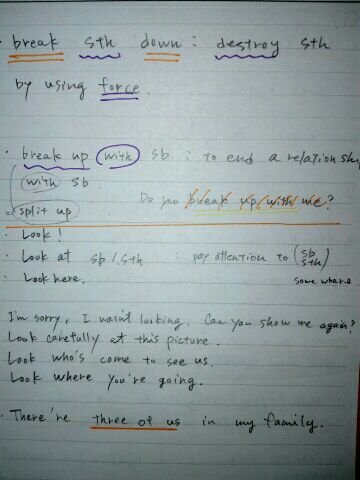 · break sth down : destroy sth
by using force.
· break up with sb : to end a relationship
with sb.
Do you break up with me?
= split up
· Look!
· Look at sb/sth : pay attention to (sb sth
· Look here. somewhere
I'm sorry, I wasn't looking. Can you show me again?
Look carefully at this picture.
Look who's come to see us.
Look where you're going.
· There're three of us in my family.